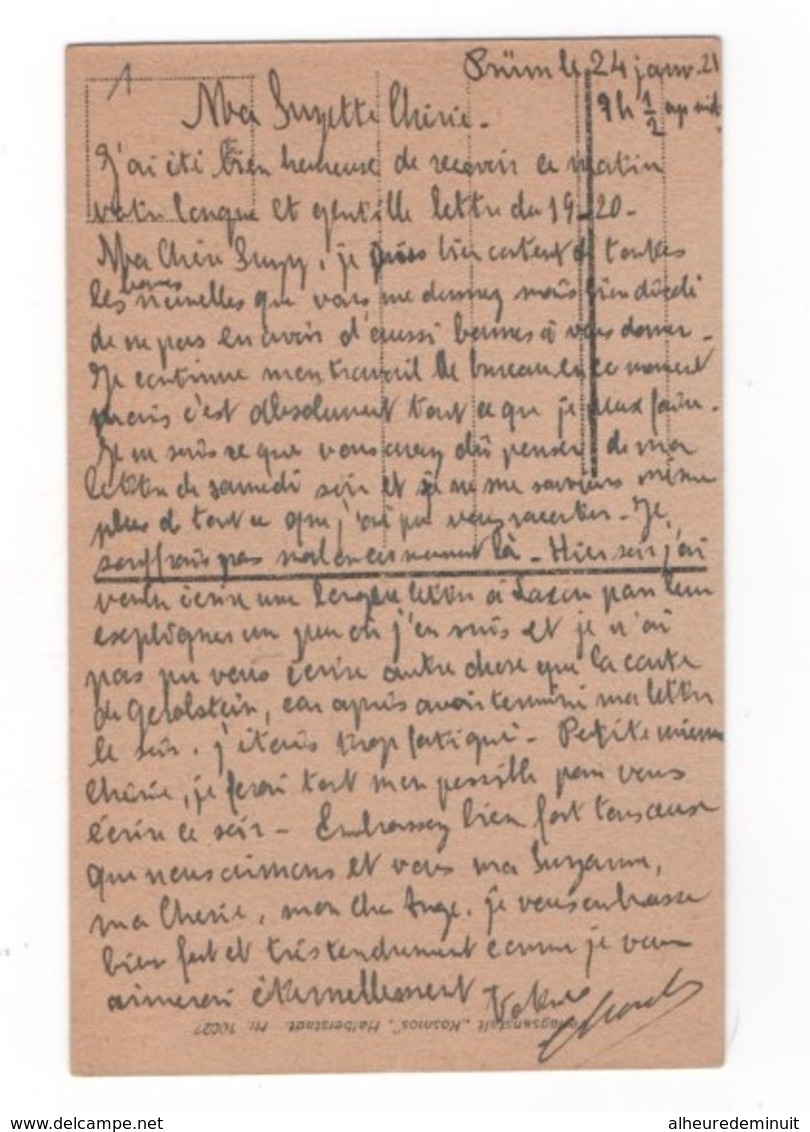 1
Prüm le 24 janv. 21
9h 1/2 ap mid.
Ma Suzette Chérie -
J'ai été bien heureuse de recevoir ce matin
votre longue et gentille lettre du 19-20-
Ma Chérie Suzy, je suis bien content de toutes
les bonnes nouvelles que vous me donnez mais bien désolé
de ne pas en avoir d'aussi bonnes à vous donner -
Je continue mon travail de bureau en ce moment
mais c'est absolument tout ce que je peux faire -
Je ne sais ce que vous avez dû penser de ma
lettre de samedi soir et je ne me souviens même
plus de tout ce que j'ai pu vous raconter - Je
souffrais pas mal en ce moment là - Hier soir j'ai
voulu écrire une longue lettre à pour leur
expliquer un peu où j'en suis et je n'ai
pas pu vous écrire autre chose que la carte
de Gerolstein, car après avoir terminé ma lettre
le soir, j'étais trop fatigué - Petite mienne
Chérie, je ferai tout mon possible pour vous
écrire ce soir - Embrassez bien fort tous ceux
que nous aimons et vous ma Suzanne,
ma Chérie, mon cher Ange, je vous embrasse
bien fort et très tendrement comme je vous
aimerai éternellement Votre
Verlagsanstalt „Kosmos", Halberstadt. Nr. 1002?
alheuredeminuit.com